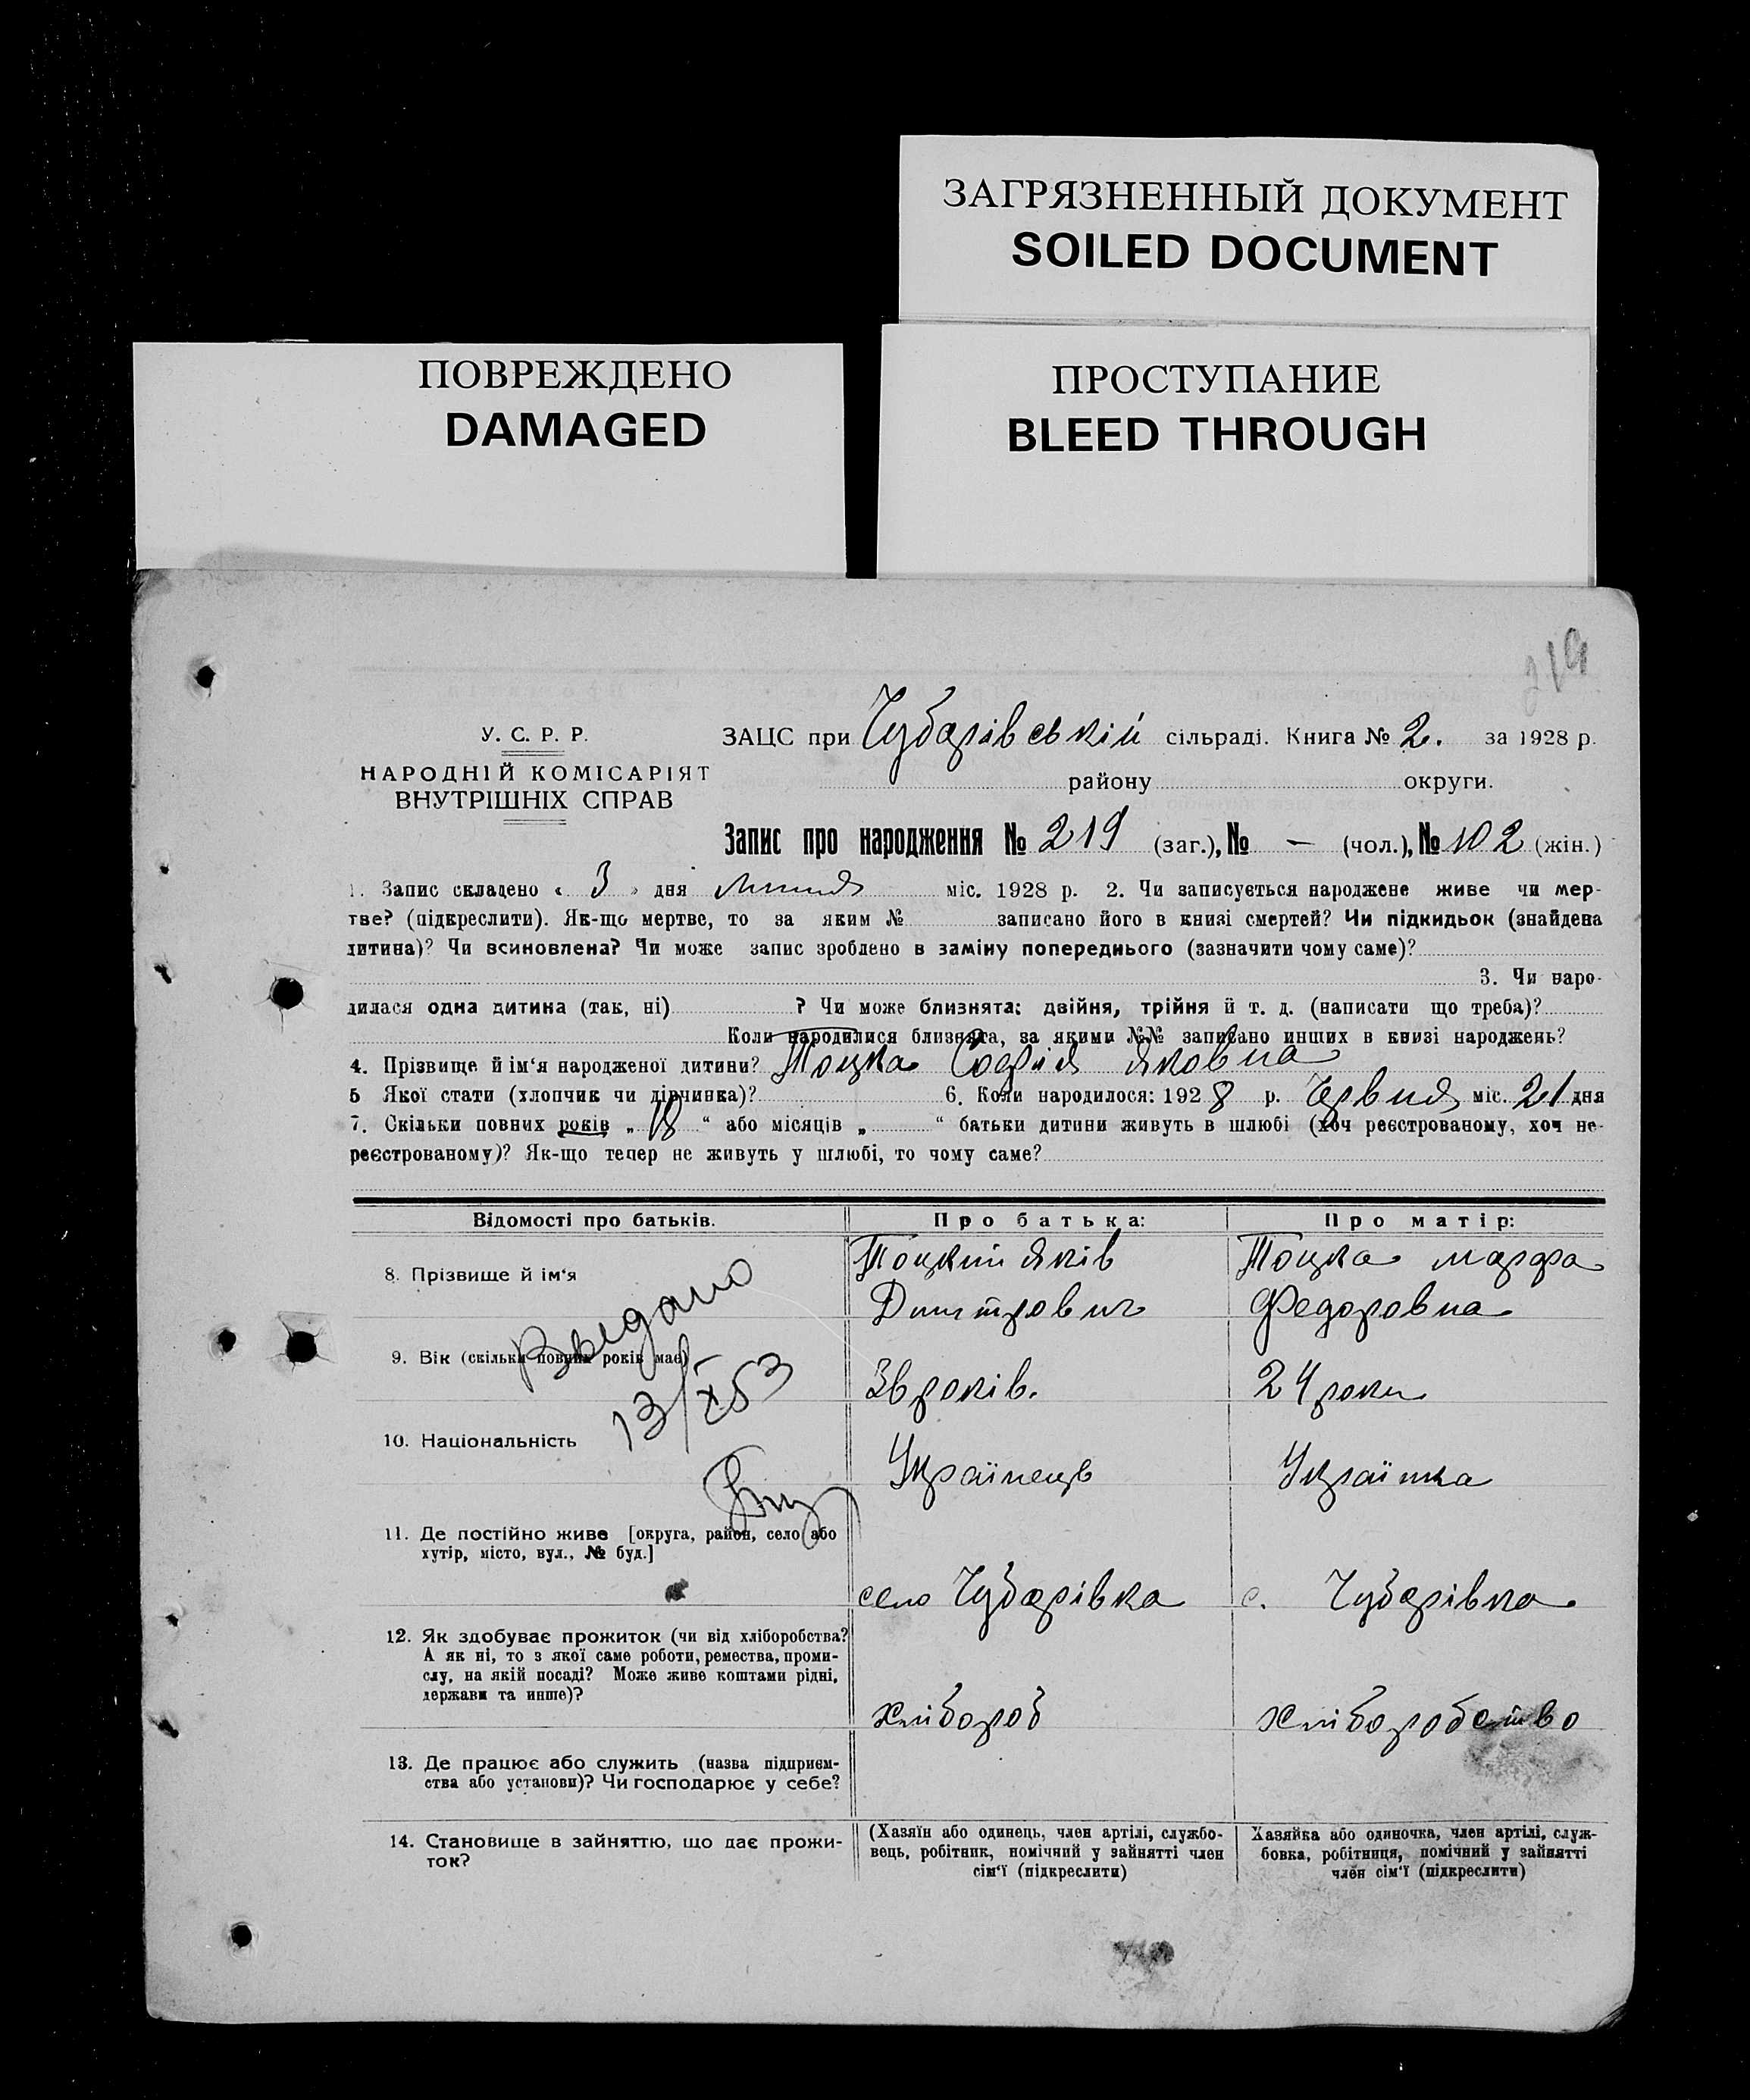 ЗАГРЯЗНЕННЫЙ ДОКУМЕНТ
SOILED DOCUMENT
ПОВРЕЖДЕНО
DAMAGED
ПРОСТУПАНИЕ
BLEED THROUGH
219
У. С. Р. Р.
НАРОДНІЙ КОМІСАРІЯТ
ВНУТРІШНІХ СПРАВ
ЗАЦС при Чубарівській сільраді. Книга № 2. за 1928 р.
району округи.
Запис про народження № 219 (заг.), № — (чол.), № 102 (жін.)
1. Запис складено « 3 » дня липня міс. 1928 р. 2. Чи записується народжене живе чи мер-
тве? (підкреслити). Як-що мертве, то за яким № записано його в книзі смертей? Чи підкидьок (знайдена
дитина)? Чи всиновлена? Чи може запис зроблено в заміну попереднього (зазначити чому саме)?
3. Чи наро-
дилася одна дитина (так, ні) ? Чи може близнята: двійня, трійня й т. д. (написати що треба)?
Коли народилися близнята, за якими №№ записано инших в книзі народжень?
4. Прізвище й ім‘я народженої дитини? Тоцка Софія Яковна
5 Якої стати (хлопчик чи дівчинка)? 6. Коли народилося: 1928 р. Червня міс. 21 дня
7. Скільки повних років „ “ або місяців „ “ батьки дитини живуть в шлюбі (хоч реєстрованому, хоч не-
реєстрованому)? Як-що тепер не живуть у шлюбі, то чому саме?
Відомості про батьків. Про батька: Про матір:
8. Прізвище й ім‘я Тоцкий Яків Дмитрович Тоцка Марфа Федоровна
Выдано
13/XI 53
9. Вік (скільки повних років має) 36 років. 24 роки
10. Національність Українець Українка
11. Де постійно живе [округа, район, село або
хутір, місто, вул., № буд.]
село Чубарівка с. Чубарівка
12. Як здобуває прожиток (чи від хліборобства?
А як ні, то з якої саме роботи, ремества, проми-
слу, на якій посаді? Може живе коштами рідні,
держави та инше)?
хлібороб хліборобство
13. Де працює або служить (назва підприєм-
ства або установи)? Чи господарює у себе?
14. Становище в зайняттю, що дає прожи-
ток?
(Хазяїн або одинець, член артілі, службо-
вець, робітник, помічний у зайнятті член
сім‘ї (підкреслити)
Хазяйка або одиночка, член артілі, служ-
бовка, робітниця, помічний у зайнятті
член сім‘ї (підкреслити)